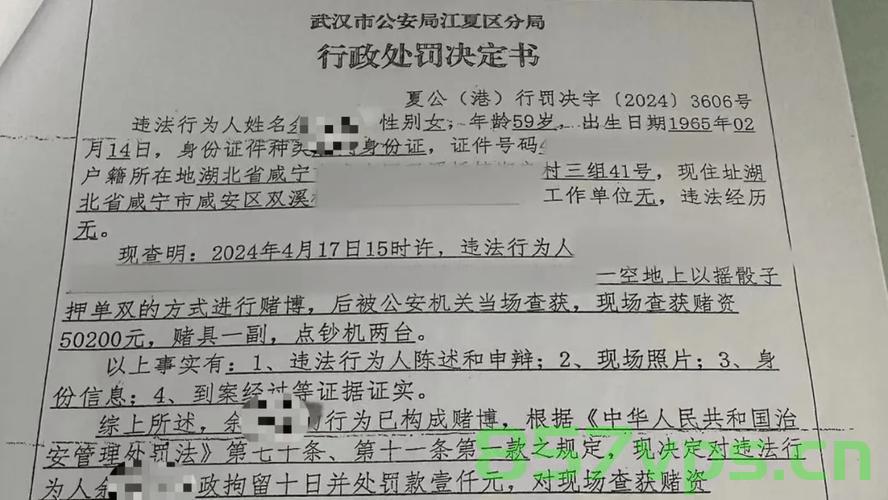 武汉市公安局江夏区分局
行政处罚决定书
夏公（港）行罚决字〔2024〕3606号
违法行为人姓名余 性别女，年龄59岁，出生日期1965年02
月14日，身份证件种类 身份证，证件号码4
户籍所在地湖北省咸宁 村三组41号，现住址湖
北省咸宁市咸安区双溪 工作单位无，违法经历
无。
现查明：2024年4月17日15时许，违法行为人
一空地上以摇骰子
押单双的方式进行赌博，后被公安机关当场查获，现场查获赌资
50200元，赌具一副，点钞机两台。
以上事实有：1、违法行为人陈述和申辩；2、现场照片；3、身
份信息；4、到案经过等证据证实。
综上所述，余 的行为已构成赌博，根据《中华人民共和国治
安管理处罚法》第七十条、第十一条第一款之规定，现决定对违法行
为人余 政拘留十日并处罚款壹仟元，对现场查获赌资
857vps.cn